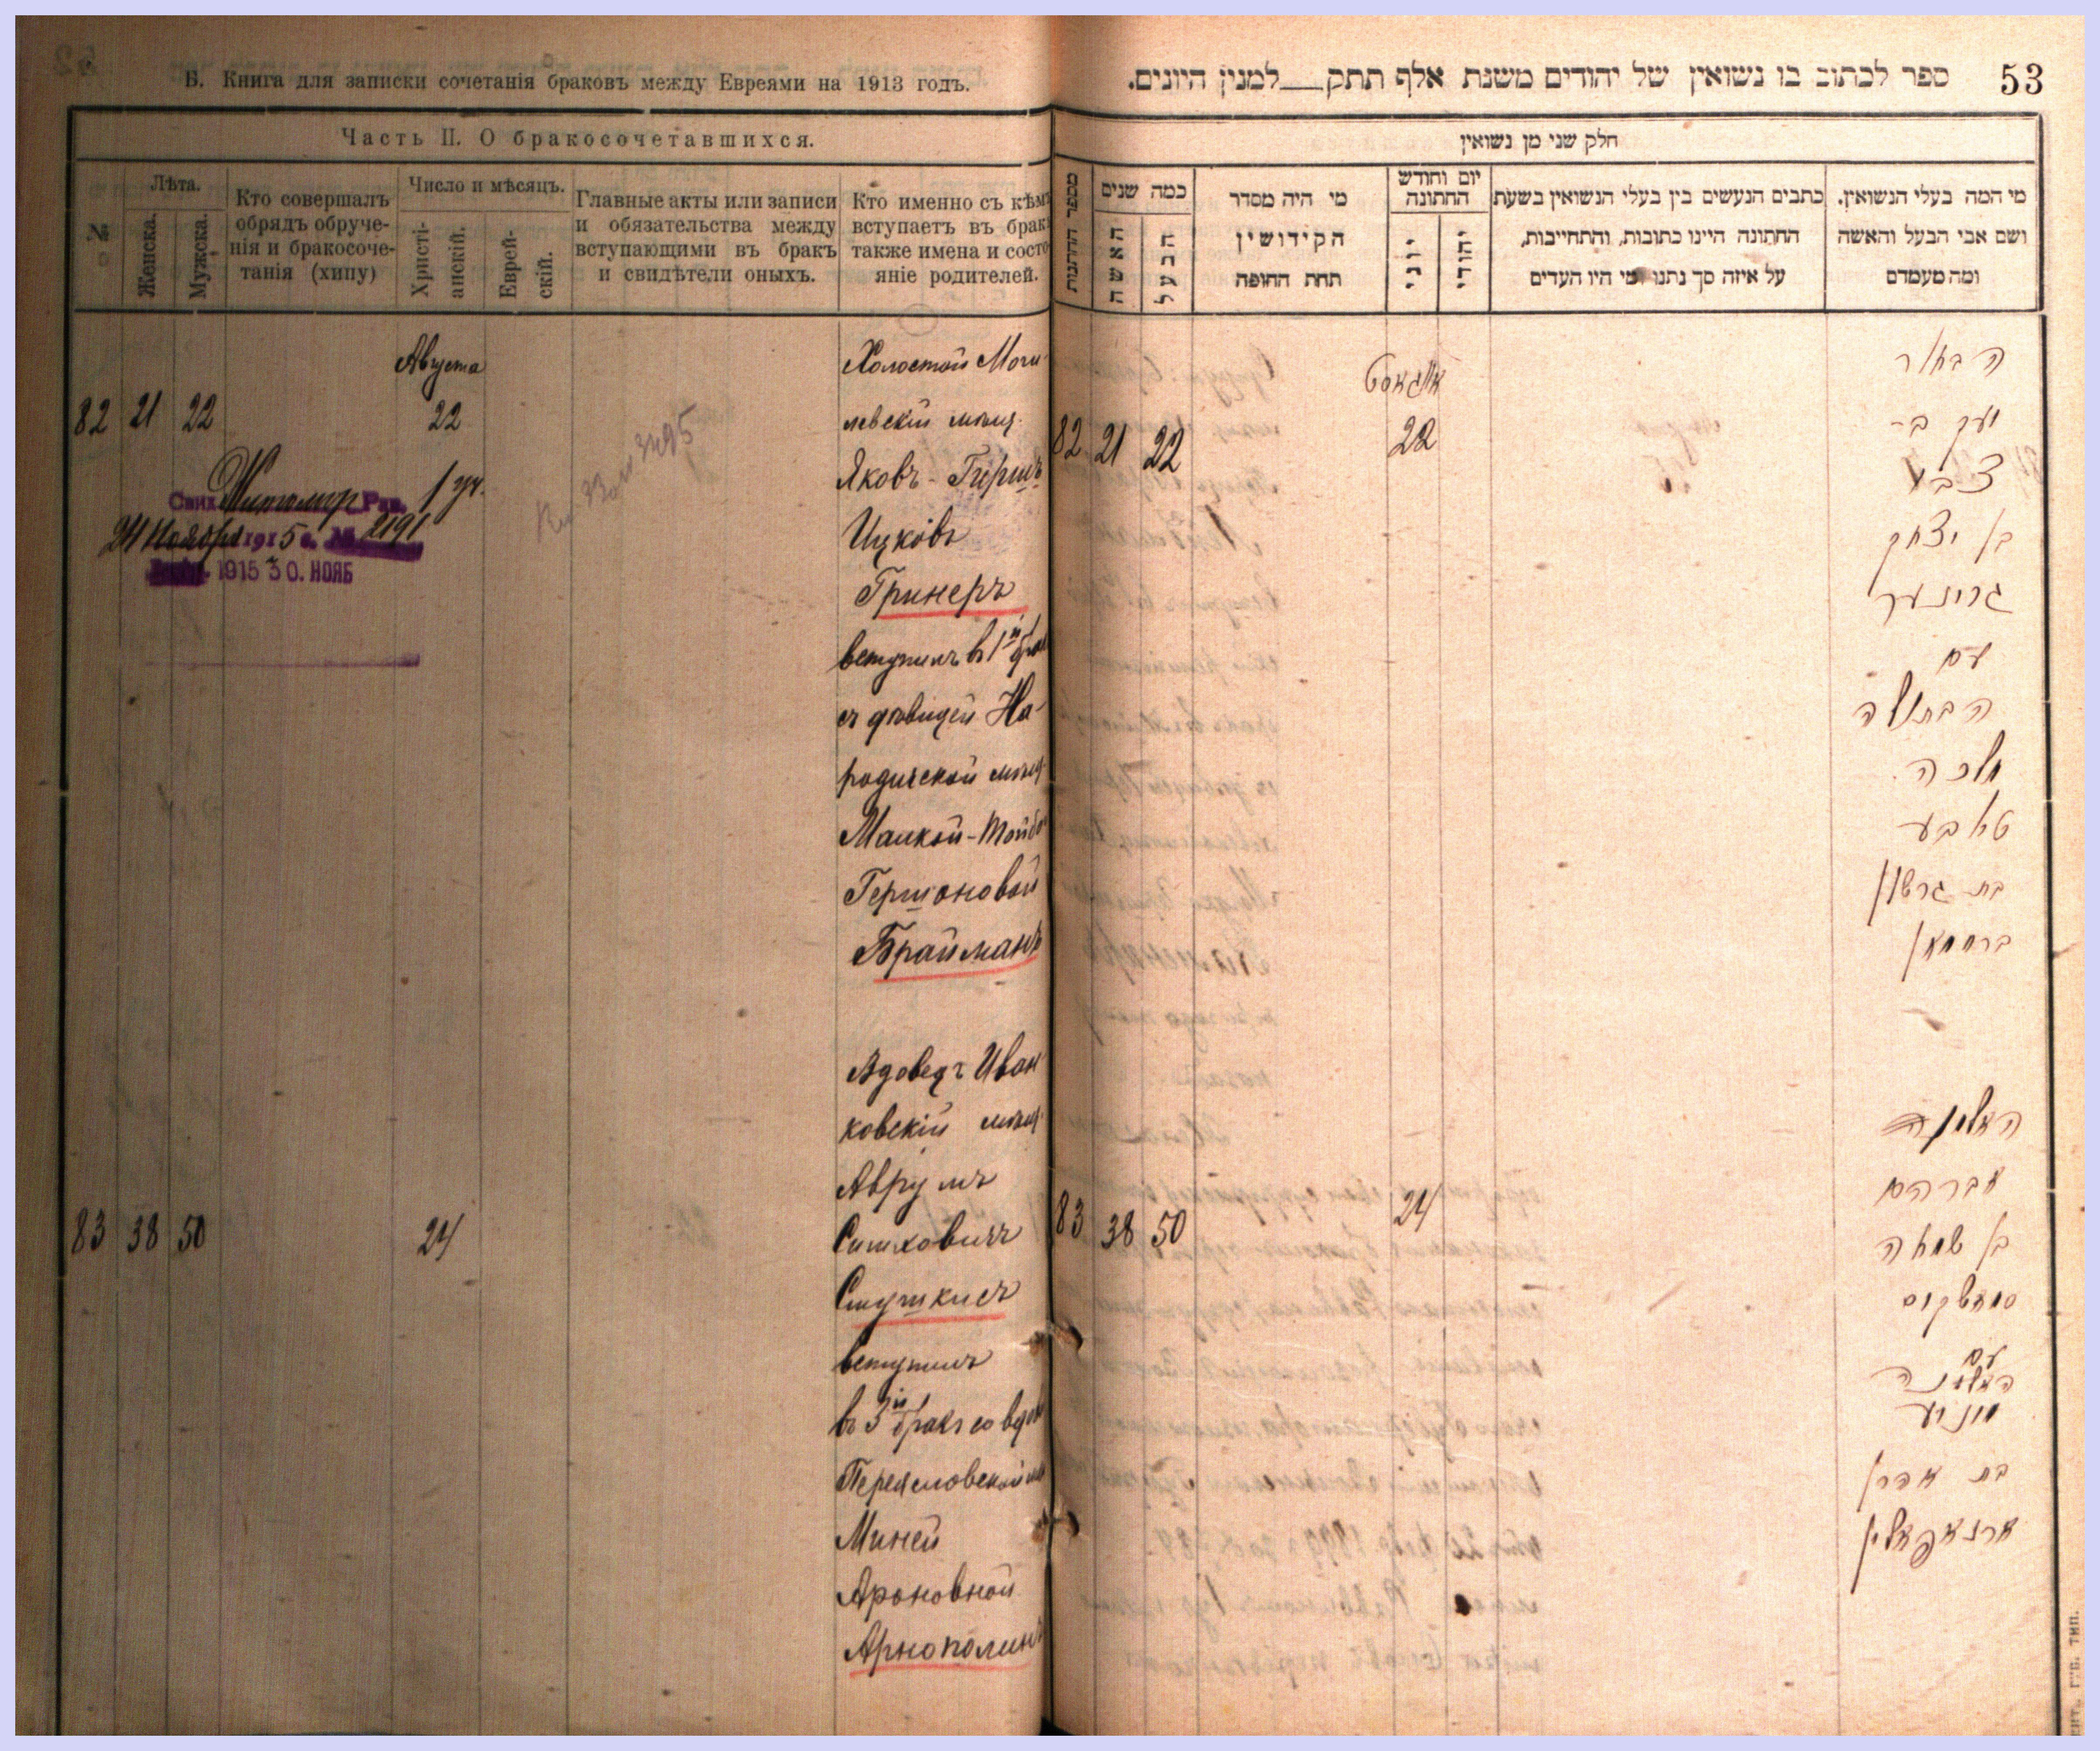 Б. Книга для записки сочетанія браковъ между Евреями на 1913 годъ.
Часть II. О бракосочетавшихся.
№
Лѣта.
Женска.
Мужска.
Кто совершалъ
обрядъ обруче-
нія и бракосоче-
танія (хипу)
Число и мѣсяцъ.
Христі-
анскій.
Еврей-
скій.
Главные акты или записи
и обязательства между
вступающими въ бракъ
и свидѣтели оныхъ.
Кто именно съ кѣмъ
вступаетъ въ бракъ
также имена и состо-
яніе родителей.
Августа
82 21 22 22
Холостой Моги-
левскій мѣщ.
Яковъ-Гершъ
Ицковъ
Гринеръ
вступилъ въ 1й бракъ
съ дѣвицей На-
родичской мѣщ.
Малкой-Тойбой
Гершоновой
Брайманъ
Житомир. Рав. 1 уч.
24 Ноября 1915 г. № 2191
1915 30. НОЯБ
83 38 50 24
Вдовецъ Иван-
ковскій мѣщ.
Аврумъ
вступилъ
въ 3й бракъ со вдов
Переясловской
Миней
Ароновной
Арнополинъ
53
ספר לכתוב בו נשואין של יהודים משנת אלף תתק למנין היונים.
חלק שני מן נשואין
מספר החתונות
כמה שנים
האשה
הבעל
מי היה מסדר
הקידושין
תחת החופה
יום וחודש
החתונה
יוני
יהודי
כתבים הנעשים בין בעלי הנשואין בשעת
החתונה היינו כתובות, והתחייבות,
על איזה סך נתנו ומי היו העדים
מי המה בעלי הנשואין.
ושם אבי הבעל והאשה
ומה מעמדם
אווגוסט
82 21 22 22
הבחור
יעקב
צבי
בן יצחק
גרינער
עם
הבתולה
מלכה
טאבע
בת גרשון
ברוימאן
83 38 50 24
האלמן
אברהם
בן שמחה
עם
האלמנה
מיניע
בת אהרן
ארנאפאלין